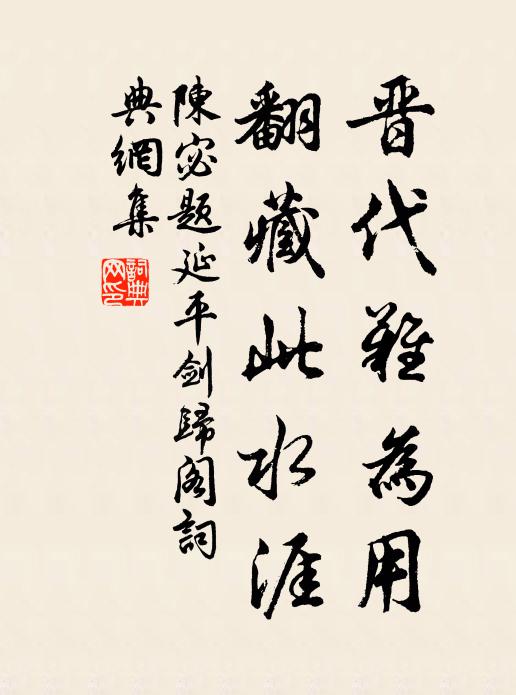 晋代難為用
翻藏此水涯
陳宓題延平劍歸閣詞
典網集
詞典網印